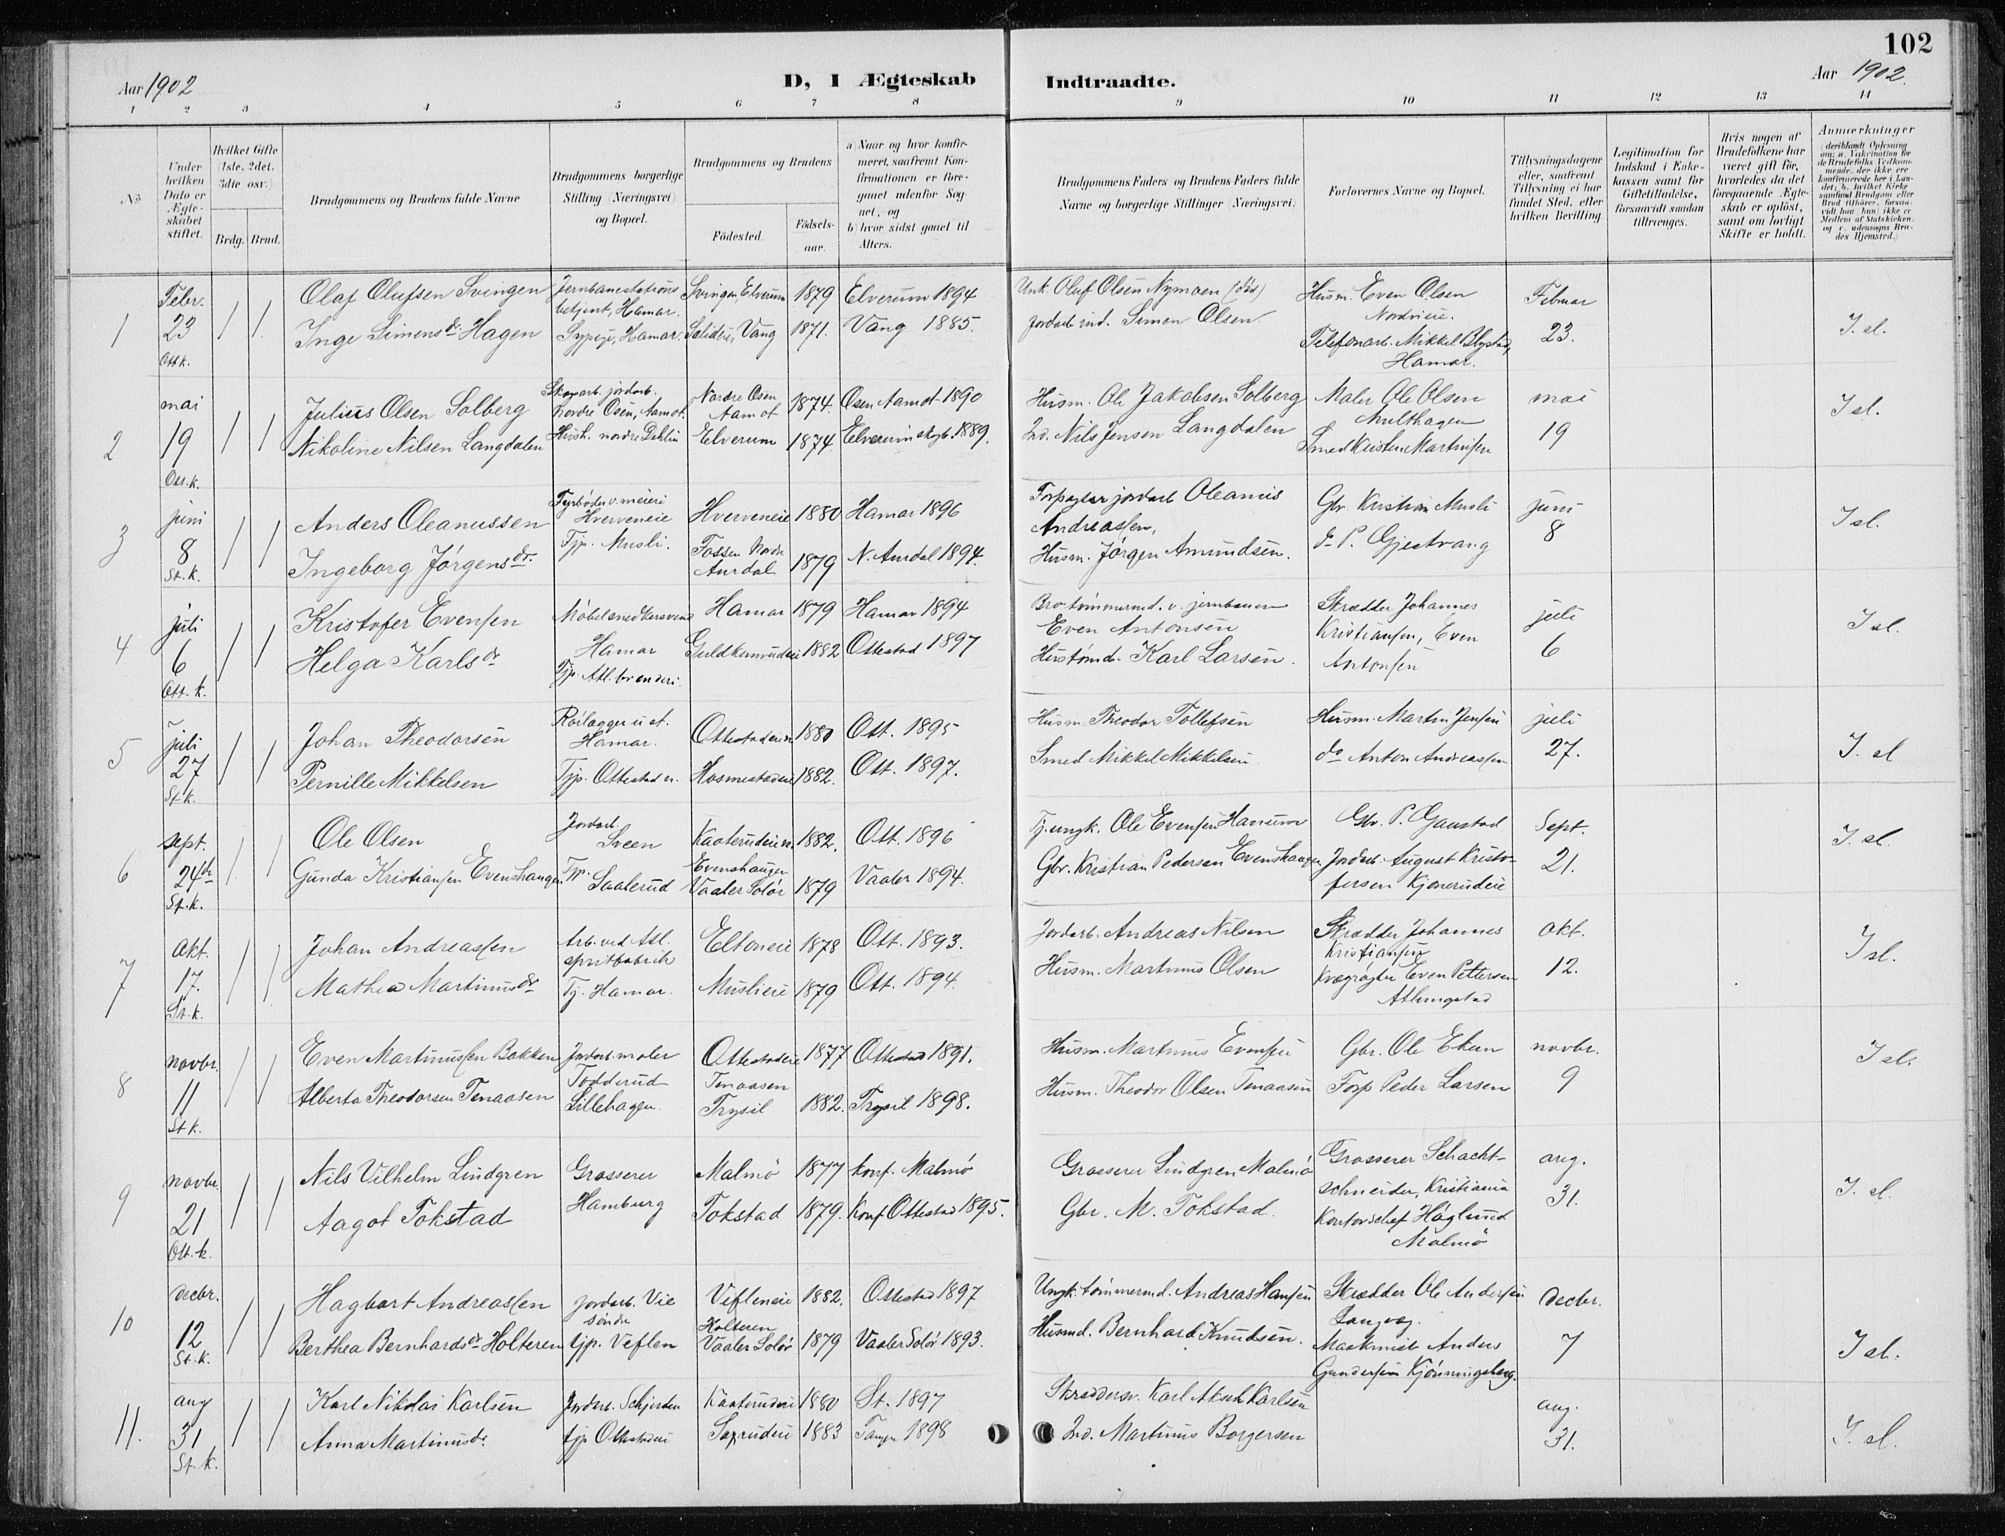 102
Aar 1902
D, I Ægteskab Indtraadte.
Aar 1902
1 2 3 4 5 6 7 8 9 10 11 12 13 14
No
Under hvilken Dato er Ægteskabet stiftet.
Hvilket Gifte (1ste, 2det, 3die osv.)
Brdg. Brud.
Brudgommens og Brudens fulde Navne
Brudgommens borgerlige Stilling (Næringsvei) og Bopæl.
Brudgommens og Brudens
Fødested.
Fødsels-aar.
a) Naar og hvor konfirmeret, saafremt Konfirmationen er foregaaet udenfor Sognet, og
b) hvor sidst gaaet til Alters.
Brudgommens Faders og Brudens Faders fulde Navne og borgerlige Stillinger (Næringsvei).
Forlovernes Navne og Bopæl.
Tillysningsdagene eller, saafremt Tillysning ei har fundet Sted, efter hvilken Bevilling.
Legitimation for Indskud i Enkekassen samt for Giftetilladelse, forsaavidt saadan tiltrænges.
Hvis nogen af Brudefolkene har været gift før, hvorledes da det foregaaende Ægteskab er opløst, samt om lovligt Skifte er holdt.
Anmærkninger
1 Febr. 23 Ott.k. / /
Olaf Olufsen Svingen Jernbanestations betjent, Hamar. Svingen, Elverum 1879 Elverum 1894 Unk. Oluf Olsen Nymoen (død) Husm. Even Olsen Nordvieie. Februar 23. I sl.
Inge Simensdr. Hagen Sypige, Hamar. Vang 1871. Vang 1885. Simen Olsen Telefonarb. Mikkel Hamar.
2 mai 19 Ott.k. / /
Julius Olsen Solberg jordarb. Nordre Osen, Aamot. Nordre Osen Aamot 1874. Osen Aamot 1890 Husm. Ole Jakobsen Solberg Maler Ole Olsen mai 19 I sl.
Nikoline Nilsen Langdalen Hush. nordre Dahlin Elverum 1874 Elverum 1889. Ind. Nils Jensen Langdalen Smed Kristen Martinsen
3 juni 8 St.k. / /
Anders Oleanussen Fyrbøder v. meieri Hverveneie Hverveneie 1880 Hamar 1896 Forpagter jordarb Oleanus Andreassen, Gbr. Kristian Musli juni 8 I sl.
Ingeborg Jørgensdr. Tjp. Musli. Fossen Nordre Aurdal 1879 N. Aurdal 1894. Husm. Jørgen Amundsen. do P. Gjestvang
4 juli 6 Ott.k. / /
Kristofer Evensen Møbelsnedkersvend Hamar Hamar 1879 Hamar 1894 Brotømmermd. v. jernbanen Even Antonsen Skrædder Johannes Kristiansen, Even Antonsen juli 6 I sl.
Helga Karlsdr Tjp. Atl. brænderi. 1882 Ottestad 1897 Karl Larsen.
5 juli 27 St.k. / /
Johan Theodorsen Rørlægger Hamar. 1880 Ott. 1895 Husm. Theodor Tollefsen Husm. Martin Jensen juli 27. I. sl
Pernille Mikkelsen Tjp. Ottestad Hosmestadeie 1882. Ott. 1897. Smed Mikkel Mikkelsen do Anton Andreassen
6 sept. 24de St.k. / /
Ole Olsen Jordarb. Sveen Kaaterudeie 1882. Ott. 1896 Ole Evensen Gbr. P. Gaustad Sept. 21. I. sl.
Gunda Kristiansen Evenshaugen Tjp. Saalerud Evenshaugen Vaaler Solør 1879 Vaaler 1894. Gbr. Kristian Pedersen Evenshaugen Jordarb. August Kristofersen Kjonerudeie
7 okt. 17. St.k. / /
Johan Andreassen Arb. ved Atl. spritfabrik Eltoneie 1878 Ott. 1893. Jordarb. Andreas Nilsen Skrædder Johannes Kristiansen okt. 12. I sl.
Mathea Martinusdr Tj. Hamar. Muslieie 1879 Ott. 1894. Husm. Martinus Olsen Kvægrøgter Even Pettersen
8 novbr. 11 St.k. / /
Even Martinussen Bakken Jordarb. maler Todderud Ottestadeie 1877 Ottestad 1891. Husm. Martinus Evensen Gbr. Ole Eken novbr. 9 I sl.
Alberta Theodorsen Tenaasen Lillehagen. Tenaasen Trysil 1882. Trysil 1898. Husm. Theodor Olsen Tenaasen Forp Peder Larsen
9 novbr. 21 Ott.k. / /
Nils Vilhelm Lindgren Grosserer Hamburg Malmø 1877 konf. Malmø Grosserer Lindgren Malmø Grosserer Schachtschneider, Kristiania aug. 31. I. sl.
Aagot Tokstad Tokstad 1879. konf Ottestad 1895. Gbr. M. Tokstad. Kontorschef Høglund Malmö
10 decbr. 12 St.k. / /
Hagbart Andreassen Jordarb. Vie søndre Vefleneie 1882. Ottestad 1897 Ungk. tømmermd. Andreas Hansen Skrædder Ole Andersen decbr. 7 I sl.
Berthea Bernhardsdr Holteren tjp. Veflen Holteren Vaaler Solør 1879 Vaaler Solør 1893. Husmd. Bernhard Knudsen. Maskinist Anders Gundersen
11. aug 31 St.k. / /
Karl Nikolai Karlsen Jordarb. Kaaterudeie 1880 St. 1897 Karl Karlsen aug. 31. I. sl.
Anna Martinusdr. tjp Ottestad 1883 Tangen 1898 Ind. Martinus Borgersen